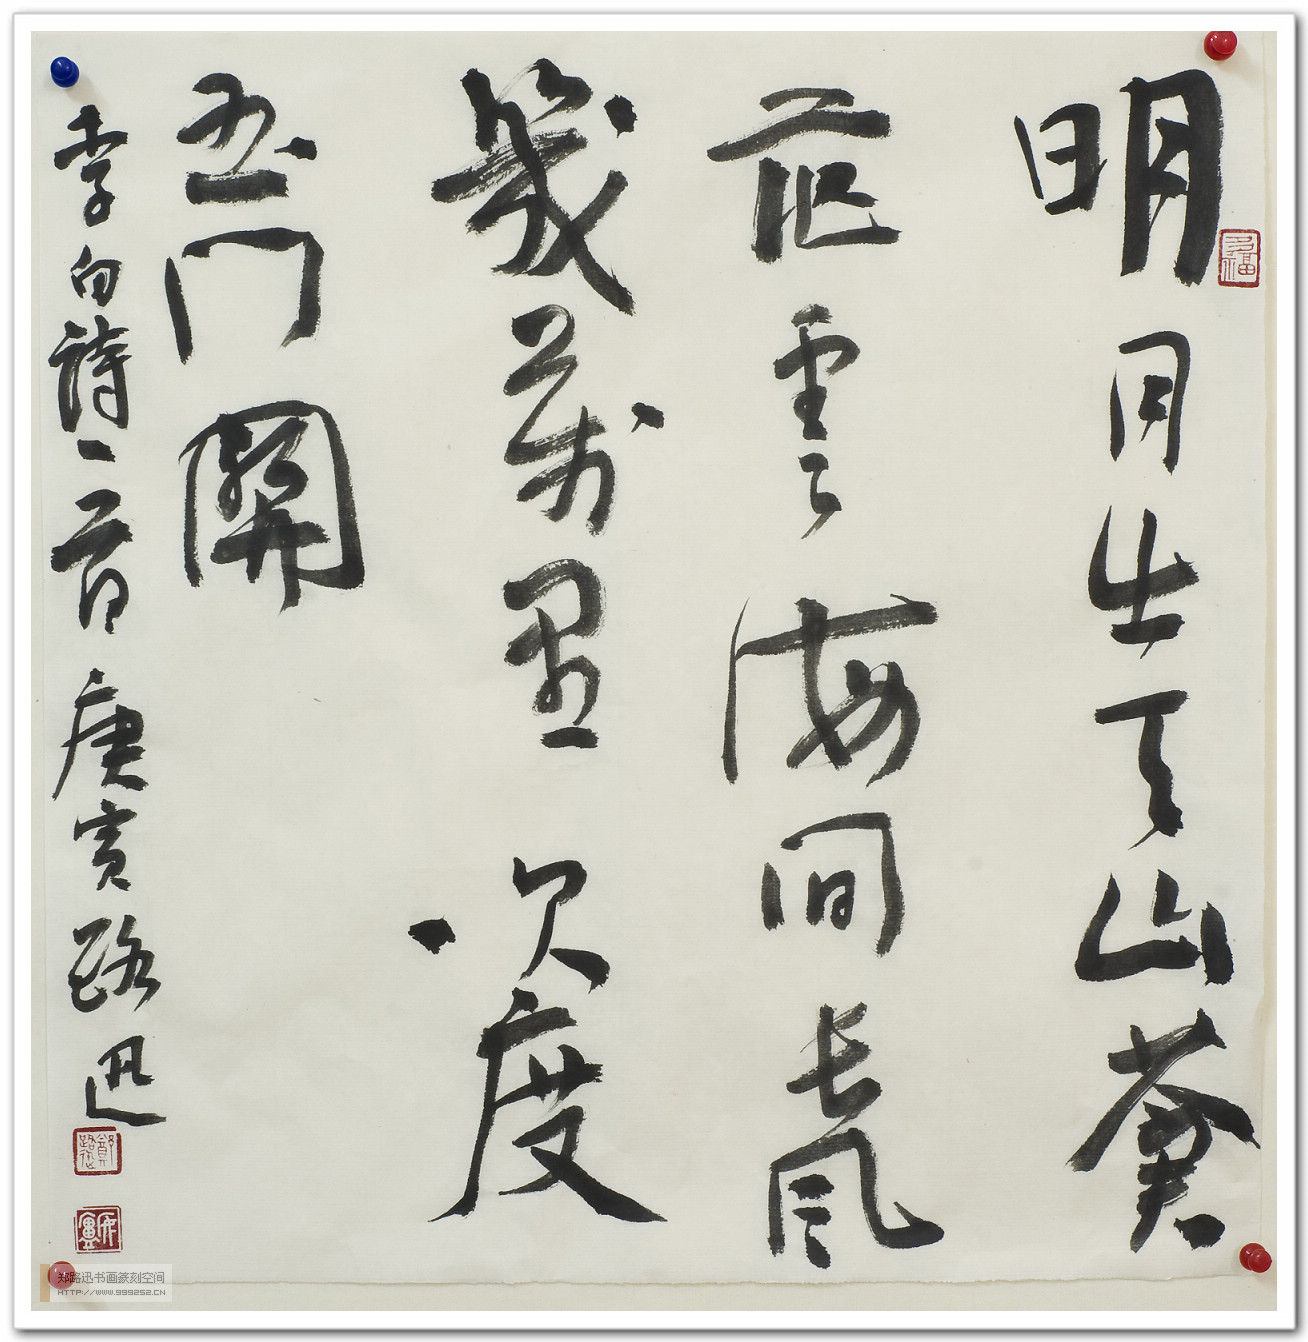 明月出天山蒼
茫雲海間長風
幾萬里吹度
玉門關
李白詩一首庚寅路迅
多福
郑路迅书画篆刻空间
HTTP://WWW.999252.CN